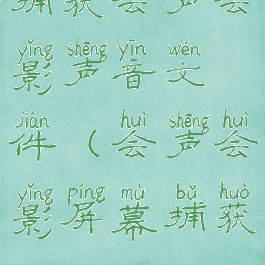 捕获会声会
yǐng shēng yīn wén
影声音文
jiàn huì shēng huì
件（会声会
yǐng píng mù bǔ huò
影屏幕捕获